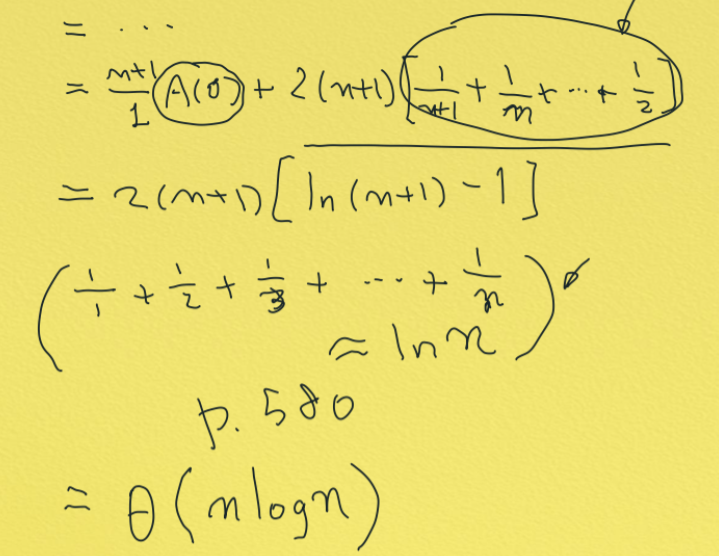 = ...
= n+1/1 A(0) + 2(n+1)[1/n+1 + 1/n + ... + 1/2]
= 2(n+1)[ln(n+1) - 1]
(1/1 + 1/2 + 1/3 + ... + 1/n
≈ ln n)
p. 580
= θ(n log n)